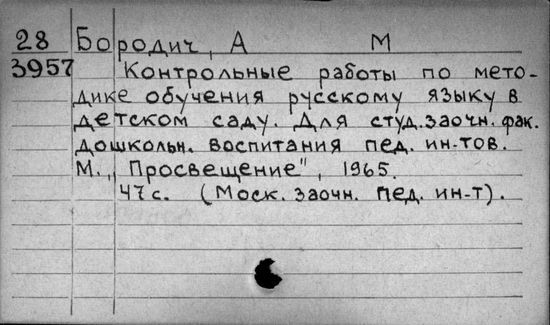 28 Бородич, А М
3957 Контрольные работы по мето-
дике обучения русскому языку в
детском саду. Для студ. заочн. фак.
дошкольн. воспитания пед. ин-тов.
М., "Просвещение", 1965.
47 с. (Моск. заочн. пед. ин-т).